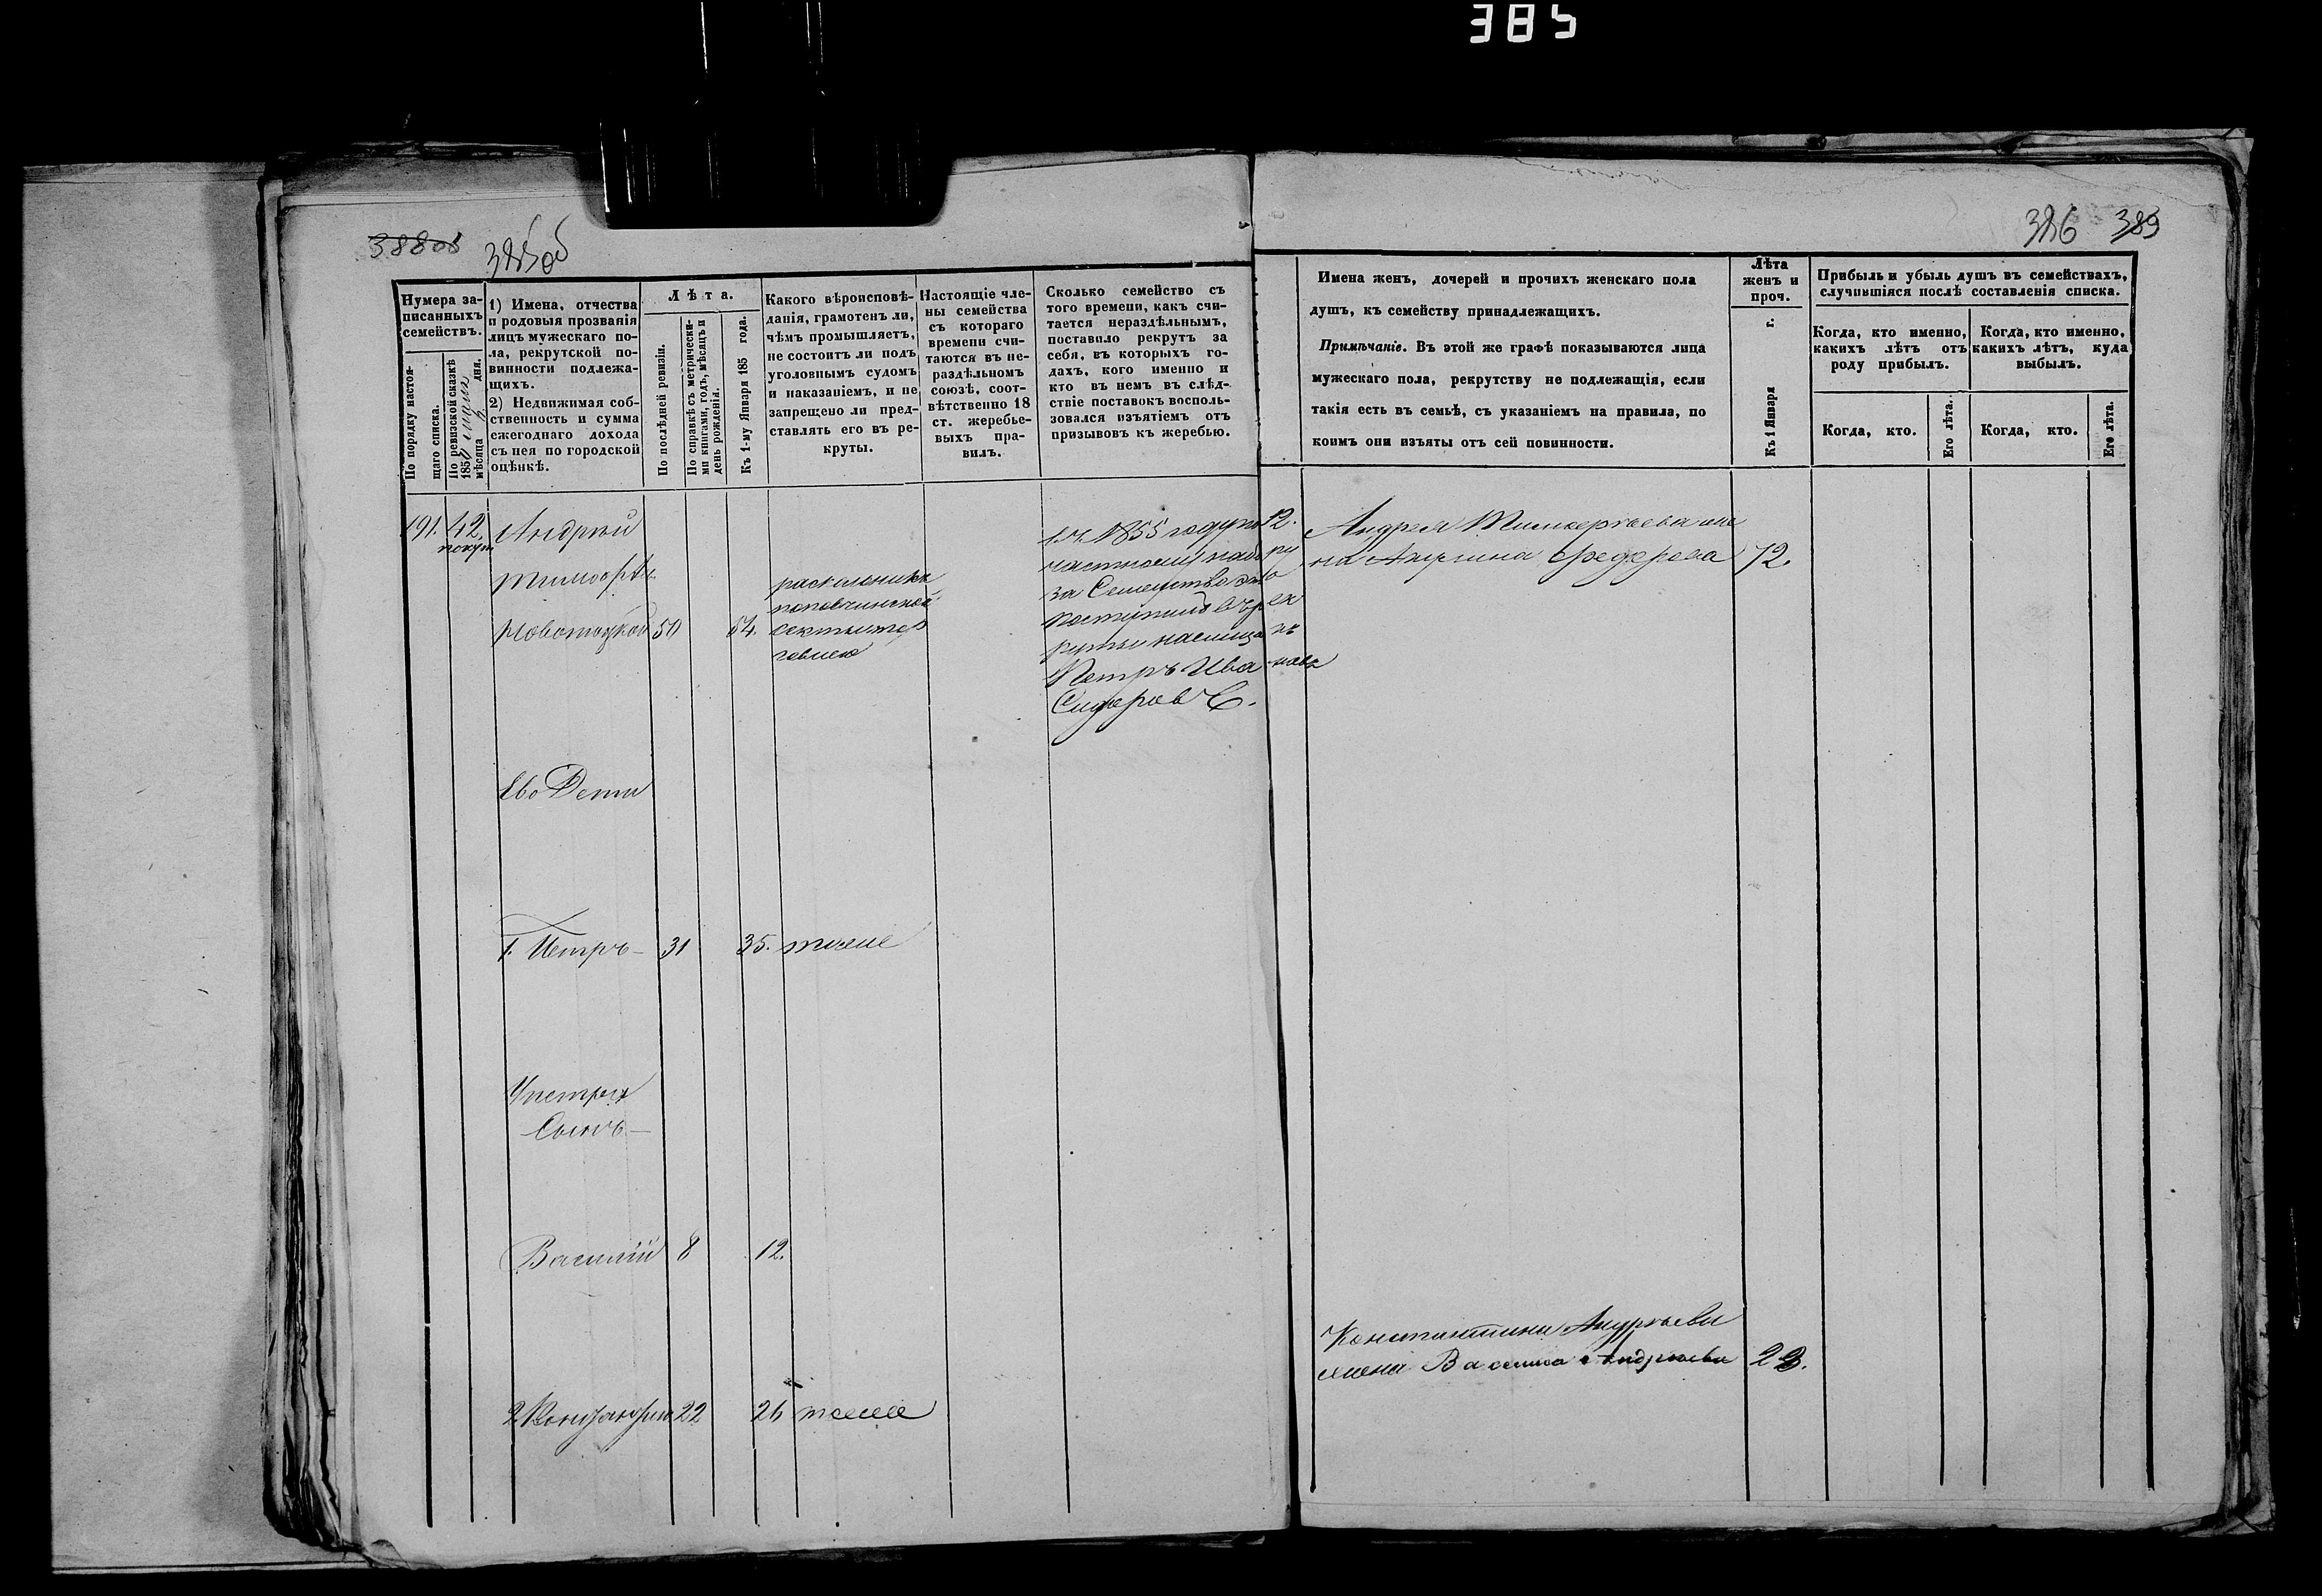 385
388об
385об
Нумера за-
писанныхъ
семействъ.
По порядку настоя-
щаго списка.
По ревизской сказкѣ
1850
мѣсяца дня.
1) Имена, отчества
и родовыя прозванія
лицъ мужескаго по-
ла, рекрутской по-
винности подлежа-
щихъ.
2) Недвижимая соб-
ственность и сумма
ежегоднаго дохода
съ нея по городской
оцѣнкѣ.
Лѣта.
По послѣдней ревизіи.
По справкѣ съ метрически-
ми книгами, годъ, мѣсяцъ и
день рожденія.
Къ 1-му Января 185 года.
Какого вѣроисповѣ-
данія, грамотенъ ли,
чѣмъ промышляетъ,
не состоитъ ли подъ
уголовнымъ судомъ
и наказаніемъ, и не
запрещено ли пред-
ставлять его въ ре-
круты.
Настоящіе чле-
ны семейства
съ котораго
времени счи-
таются въ не-
раздѣльномъ
союзѣ, соот-
вѣтственно 18
ст. жеребье-
выхъ пра-
вилъ.
Сколько семейство съ
того времени, какъ счи-
тается нераздѣльнымъ,
поставило рекрутъ за
себя, въ которыхъ го-
дахъ, кого именно и
кто въ немъ въ слѣд-
ствіе поставокъ восполь-
зовался изъятіемъ отъ
призывовъ къ жеребью.
191. 42.
Андрей
Тимофѣев
50 54.
раскольникъ
поповчинской
секты тор
говлею
1855 году по 12.
частному набору
за Семейство это
поступилъ въ рек
руты наемщикъ
Петръ Иванов
Сидоров
Ево Дети
1. Петръ 31 35. тоже
У петра
Сынъ
Василій 8 12.
2 22 26 тоже
386 389
Имена женъ, дочерей и прочихъ женскаго пола
душъ, къ семейству принадлежащихъ.
Примѣчаніе. Въ этой же графѣ показываются лица
мужескаго пола, рекрутству не подлежащія, если
такія есть въ семьѣ, съ указаніемъ на правила, по
коимъ они изъяты отъ сей повинности.
Лѣта
женъ и
проч.
Къ 1 Января г.
Прибыль и убыль душъ въ семействахъ,
случившіяся послѣ составленія списка.
Когда, кто именно,
какихъ лѣтъ отъ
роду прибылъ.
Когда, кто именно,
какихъ лѣтъ, куда
выбылъ.
Когда, кто.
Его лѣта.
Когда, кто.
Его лѣта.
Андрея Тимофѣева же
на Акулина Федорова 72.
Константина Андрѣева
жена Василиса Андрѣева 23.